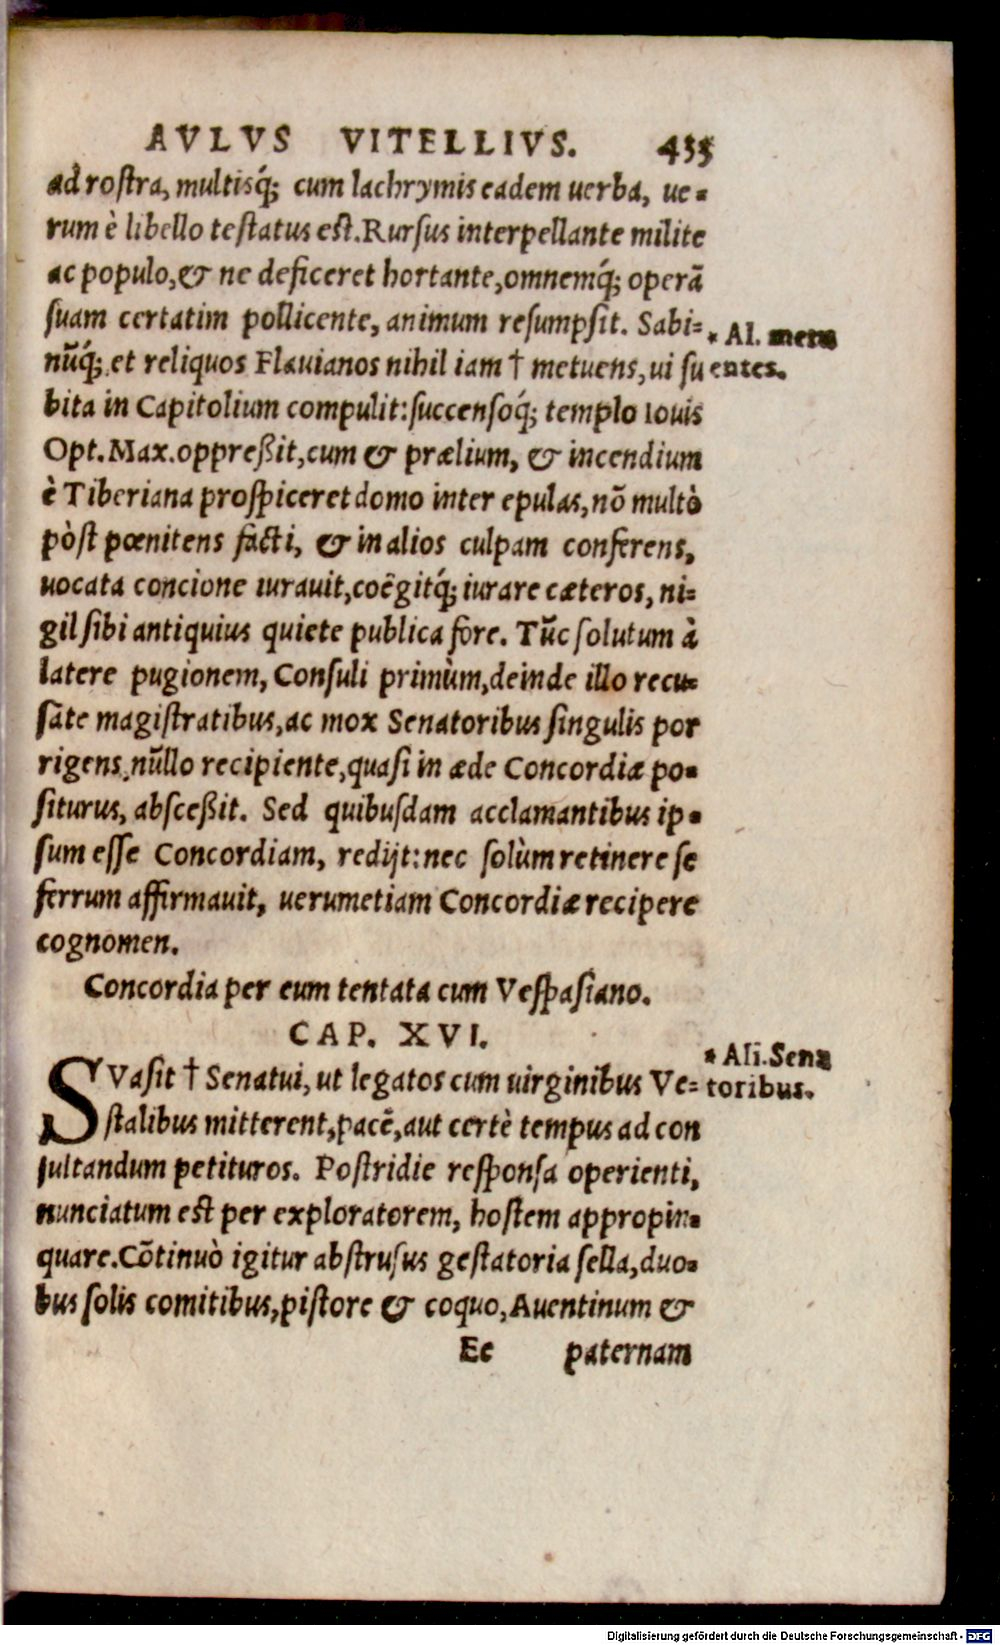 AVLVS VITELLIVS. 433
ad rostra, multisq́; cum lachrymis eadem uerba, ue-
rum è libello testatus est. Rursus interpellante milite
ac populo, & ne deficeret hortante, omnemq́; operā
suam certatim pollicente, animum resumpsit. Sabi-
* Al. metu
nūq́; et reliquos Flauianos nihil iam † metuens, ui su
entes.
bita in Capitolium compulit: succensoq́; templo Iouis
Opt. Max. oppreßit, cum & prælium, & incendium
è Tiberiana prospiceret domo inter epulas, nō multò
pòst pœnitens facti, & in alios culpam conferens,
uocata concione iurauit, coēgitq́; iurare cæteros, ni-
gil sibi antiquius quiete publica fore. Tūc solutum à
latere pugionem, Consuli primùm, deinde illo recu-
sāte magistratibus, ac mox Senatoribus singulis por
rigens, nūllo recipiente, quasi in æde Concordiæ po-
siturus, absceßit. Sed quibusdam acclamantibus ip-
sum esse Concordiam, redijt: nec solùm retinere se
ferrum affirmauit, uerumetiam Concordiæ recipere
cognomen.
Concordia per eum tentata cum Vespasiano.
CAP. XVI.
* Ali. Sena
SVasit † Senatui, ut legatos cum uirginibus Ve-
toribus.
stalibus mitterent, pacē, aut certè tempus ad con
sultandum petituros. Postridie responsa operienti,
nunciatum est per exploratorem, hostem appropin-
quare. Cōtinuò igitur abstrusus gestatoria sella, duo-
bus solis comitibus, pistore & coquo, Auentinum &
Ee paternam
Digitalisierung gefördert durch die Deutsche Forschungsgemeinschaft - DFG